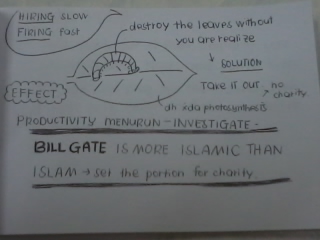 HIRING SLOW
FIRING fast
destroy the leaves without
you are realize
SOLUTION
Take it out
no
charity
EFFECT
dh xda photosynthesis
PRODUCTIVITY MENURUN - INVESTIGATE -
BILL GATE IS MORE ISLAMIC THAN
ISLAM → set the portion for charity.